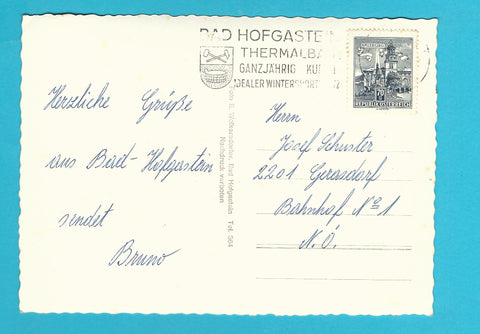 BAD HOFGASTEIN
THERMALBA
GANZJÄHRIG KU
IDEALER WINTERSPORT
REPUBLIK ÖSTERREICH
Herzliche Grüße
aus Bad-Hofgastein
sendet
Bruno
Bad Hofgastein Tel. 364
Nachdruck verboten
Herrn
Josef Schuster
2201 Gerasdorf
Bahnhof No 1
N.Ö.